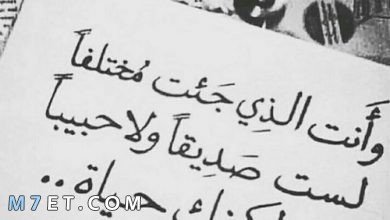 وَأَنت الذِي جَئت مُختلفاً
لست صَدِيقاً ولا حبيباً
حياة ..
M7ET.COM